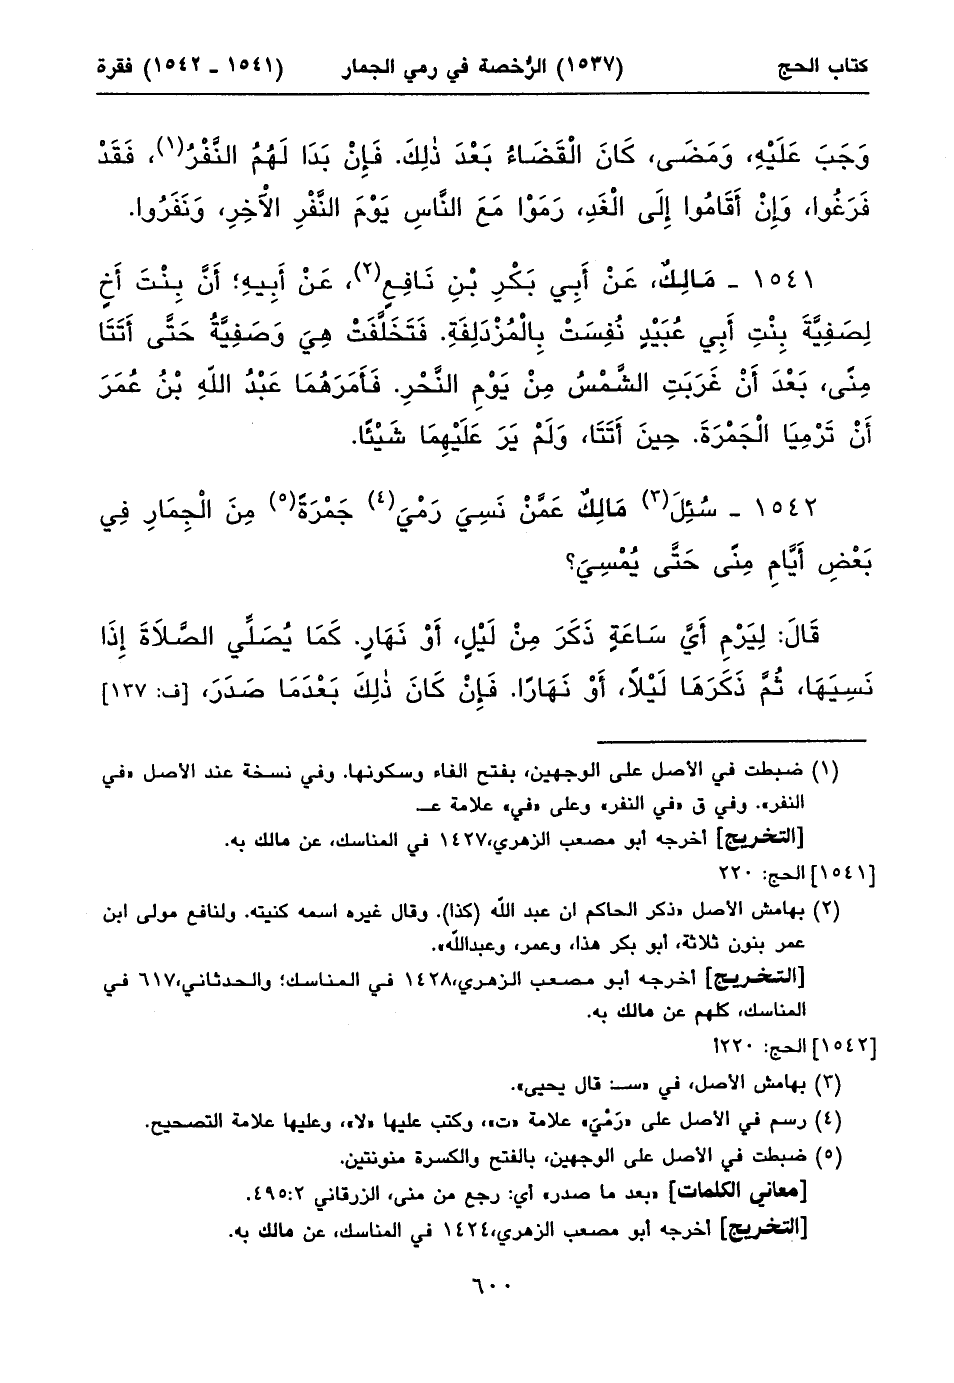 كتاب الحج (١٥٣٧) الرُّخصة في رمي الجمار (١٥٤١ ـ ١٥٤٢) فقرة
وَجَبَ عَلَيْهِ، وَمَضَى، كَانَ الْقَضَاءُ بَعْدَ ذٰلِكَ. فَإِنْ بَدَا لَهُمُ النَّفْرُ(١)، فَقَدْ
فَرَغُوا، وَإِنْ أَقَامُوا إِلَى الْغَدِ، رَمَوْا مَعَ النَّاسِ يَوْمَ النَّفْرِ الْآخِرِ، وَنَفَرُوا.
١٥٤١ ـ مَالِكٌ، عَنْ أَبِي بَكْرِ بْنِ نَافِعٍ(٢)، عَنْ أَبِيهِ؛ أَنَّ بِنْتَ أَخٍ
لِصَفِيَّةَ بِنْتِ أَبِي عُبَيْدٍ نُفِسَتْ بِالْمُزْدَلِفَةِ. فَتَخَلَّفَتْ هِيَ وَصَفِيَّةُ حَتَّى أَتَتَا
مِنًى، بَعْدَ أَنْ غَرَبَتِ الشَّمْسُ مِنْ يَوْمِ النَّحْرِ. فَأَمَرَهُمَا عَبْدُ اللَّهِ بْنُ عُمَرَ
أَنْ تَرْمِيَا الْجَمْرَةَ. حِينَ أَتَتَا، وَلَمْ يَرَ عَلَيْهِمَا شَيْئًا.
١٥٤٢ ـ سُئِلَ(٣) مَالِكٌ عَمَّنْ نَسِيَ رَمْيَ(٤) جَمْرَةً(٥) مِنَ الْجِمَارِ فِي
بَعْضِ أَيَّامِ مِنًى حَتَّى يُمْسِيَ؟
قَالَ: لِيَرْمِ أَيَّ سَاعَةٍ ذَكَرَ مِنْ لَيْلٍ، أَوْ نَهَارٍ. كَمَا يُصَلِّي الصَّلَاةَ إِذَا
نَسِيَهَا، ثُمَّ ذَكَرَهَا لَيْلاً، أَوْ نَهَارًا. فَإِنْ كَانَ ذٰلِكَ بَعْدَمَا صَدَرَ، [ف: ١٣٧]
(١) ضبطت في الأصل على الوجهين، بفتح الفاء وسكونها. وفي نسخة عند الأصل «في
النفر». وفي ق «في النفر» وعلى «في» علامة عـ
[التخريج] أخرجه أبو مصعب الزهري،١٤٢٧ في المناسك، عن مالك به.
[١٥٤١] الحج: ٢٢٠
(٢) بهامش الأصل «ذكر الحاكم ان عبد اللّه (كذا). وقال غيره اسمه كنيته. ولنافع مولى ابن
عمر بنون ثلاثة، أبو بكر هذا، وعمر، وعبداللّه».
[التخريج] أخرجه أبو مصعب الزهري،١٤٢٨ في المناسك؛ والحدثاني،٦١٧ في
المناسك، كلهم عن مالك به.
[١٥٤٢] الحج: ٢٢٠أ
(٣) بهامش الأصل، في «سـ: قال يحيى».
(٤) رسم في الأصل على «رَمْيَ» علامة «ت»، وكتب عليها «لا»، وعليها علامة التصحيح.
(٥) ضبطت في الأصل على الوجهين، بالفتح والكسرة منونتين.
[معاني الكلمات] «بعد ما صدر» أي: رجع من منى، الزرقاني ٤٩٥:٢.
[التخريج] أخرجه أبو مصعب الزهري،١٤٢٤ في المناسك، عن مالك به.
٦٠٠